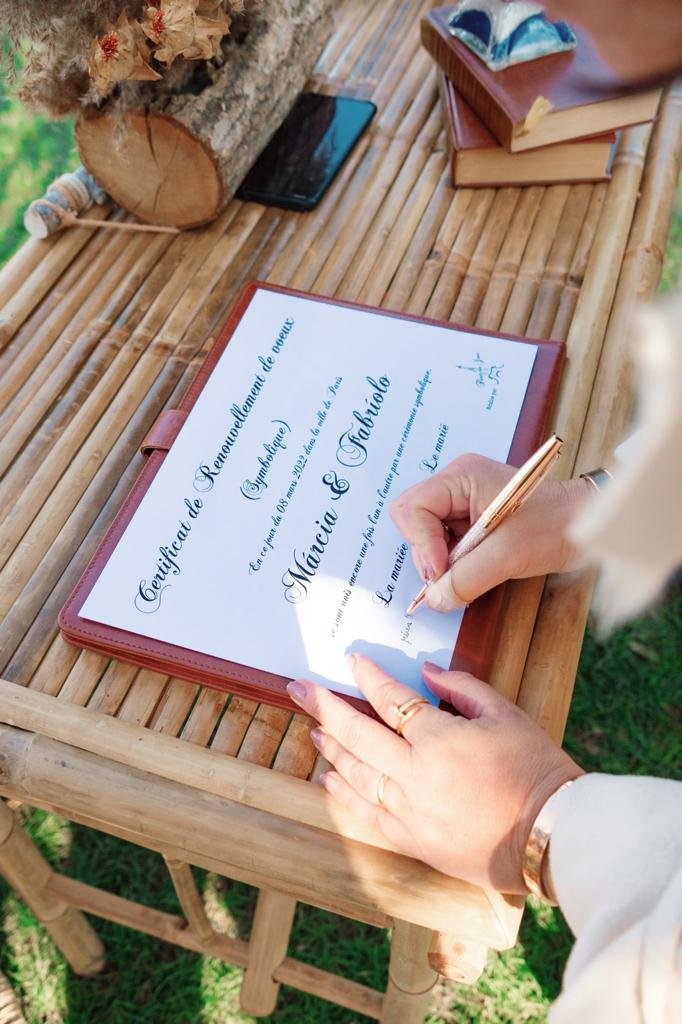 Certificat de Renouvellement de voeux
(Symbolique)
En ce jour du 08 mars 2022 dans la ville de Paris
Márcia & Fabríolo
se sont unis encore une fois l'un à l'autre par une cérémonie symbolique.
La mariée
Le marié